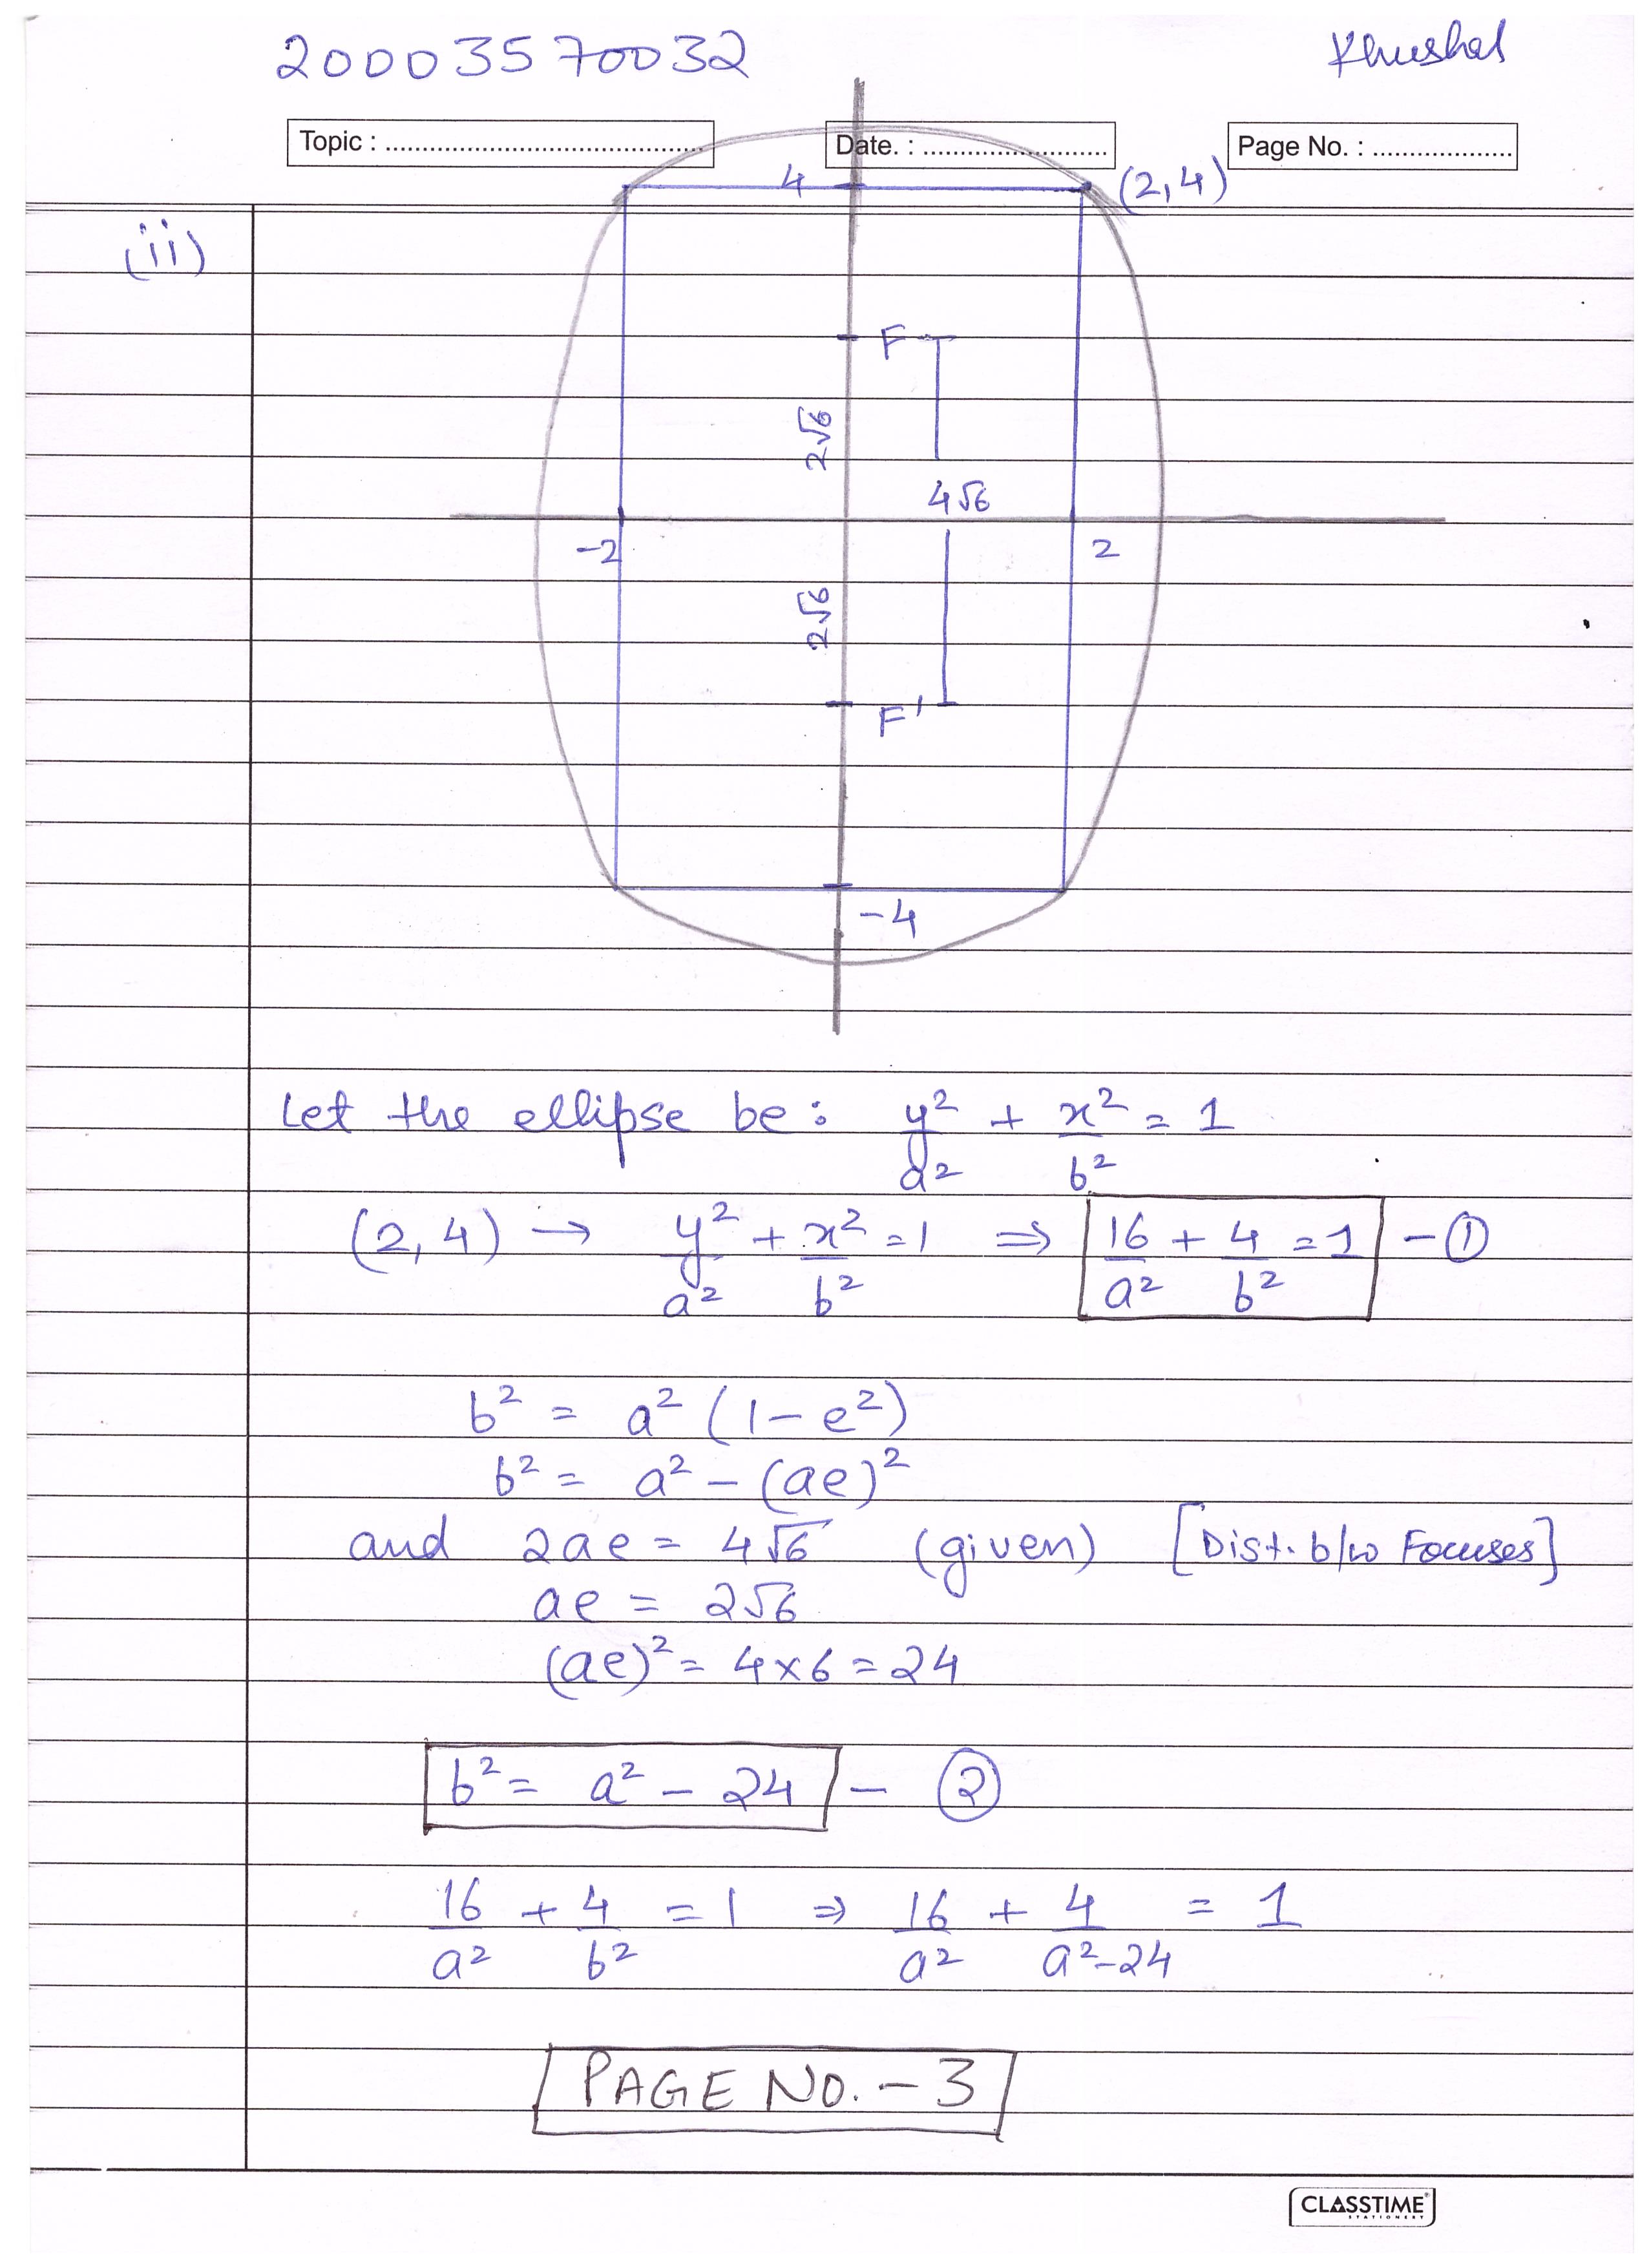 20003570032 Khushal
Topic : ............................................ Date. : .......................... Page No. : ...................
4 (2,4)
(ii)
F
2√6
4√6
-2 2
2√6
F'
-4
Let the ellipse be: y²/a² + x²/b² = 1
(2,4) → y²/a² + x²/b² = 1 ⇒ 16/a² + 4/b² = 1 - ①
b² = a² (1 - e²)
b² = a² - (ae)²
and 2ae = 4√6 (given) [Dist. b/w Focuses]
ae = 2√6
(ae)² = 4×6 = 24
b² = a² - 24 - ②
16/a² + 4/b² = 1 ⇒ 16/a² + 4/a²-24 = 1
PAGE NO. - 3
CLASSTIME
STATIONERY